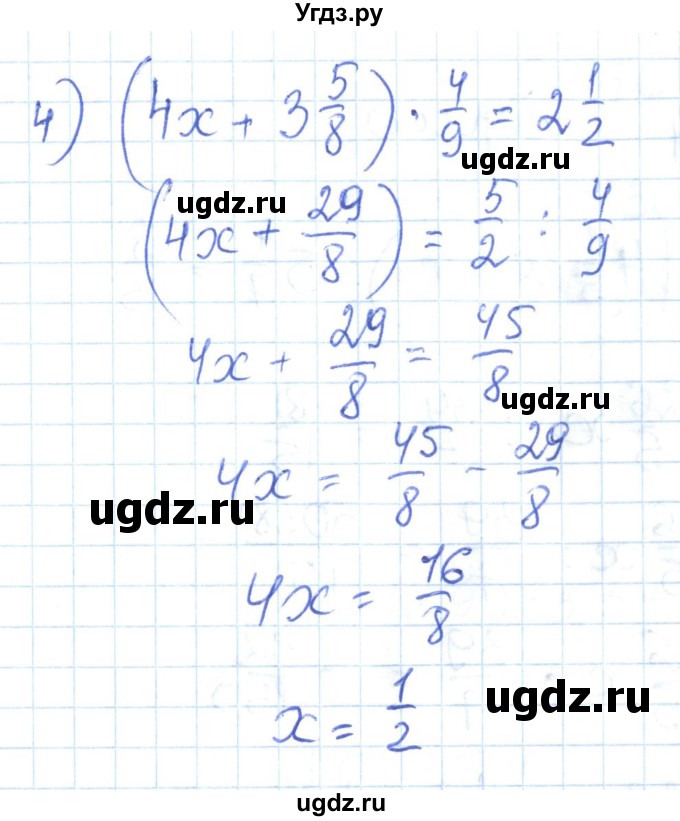 Угдз.ру
4) (4x + 3 5/8) · 4/9 = 2 1/2
ugdz.ru
ugdz.ru
(4x + 29/8) = 5/2 : 4/9
4x + 29/8 = 45/8
ugdz.ru
4x = 45/8 - 29/8
ugdz.ru
4x = 16/8
ugdz.ru
x = 1/2
ugdz.ru
ugdz.ru